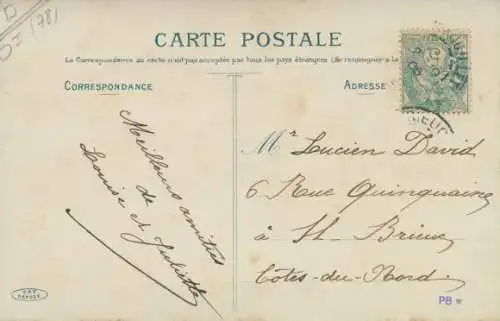 D
DI (78)
CARTE POSTALE
La Correspondance au recto n'est pas acceptée par tous les pays étrangers (Se renseigner à la
CORRESPONDANCE
ADRESSE
Meilleures amitiés
de
Louise et Juliette
Mr Lucien David
6 Rue Quinquaine
à St. Brieuc
Côtes-du-Nord
PB